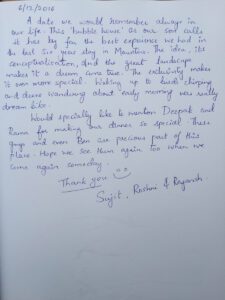 6/12/2016
A date we would remember always in
our life. This 'bubble house' as our son calls
it has by far the best experience we had in
the last six year stay in Mauritius. The idea, its
conceptualization, and the great landscape
makes it a dream come true. The exclusivity makes
it even more special. Waking up to birds chirping
and deers wandering about early morning was really
dream like.
Would specially like to mention Deepak and
Rama for making our dinner so special. These
guys and even Ben are precious part of this
place. Hope we see them again too when we
come again someday.
Thank you
Sujit, Rashmi & Reyansh